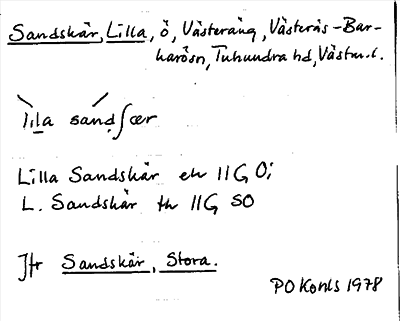 Sandskär, Lilla, ö, Västeräng, Västerås-Bar-
karösn, Tuhundra hd, Västm.l.
lila sandʃær
Lilla Sandskär ek 11G 0i
L. Sandskär tk 11G SO
Jfr Sandskär, Stora.
PO Kohls 1978